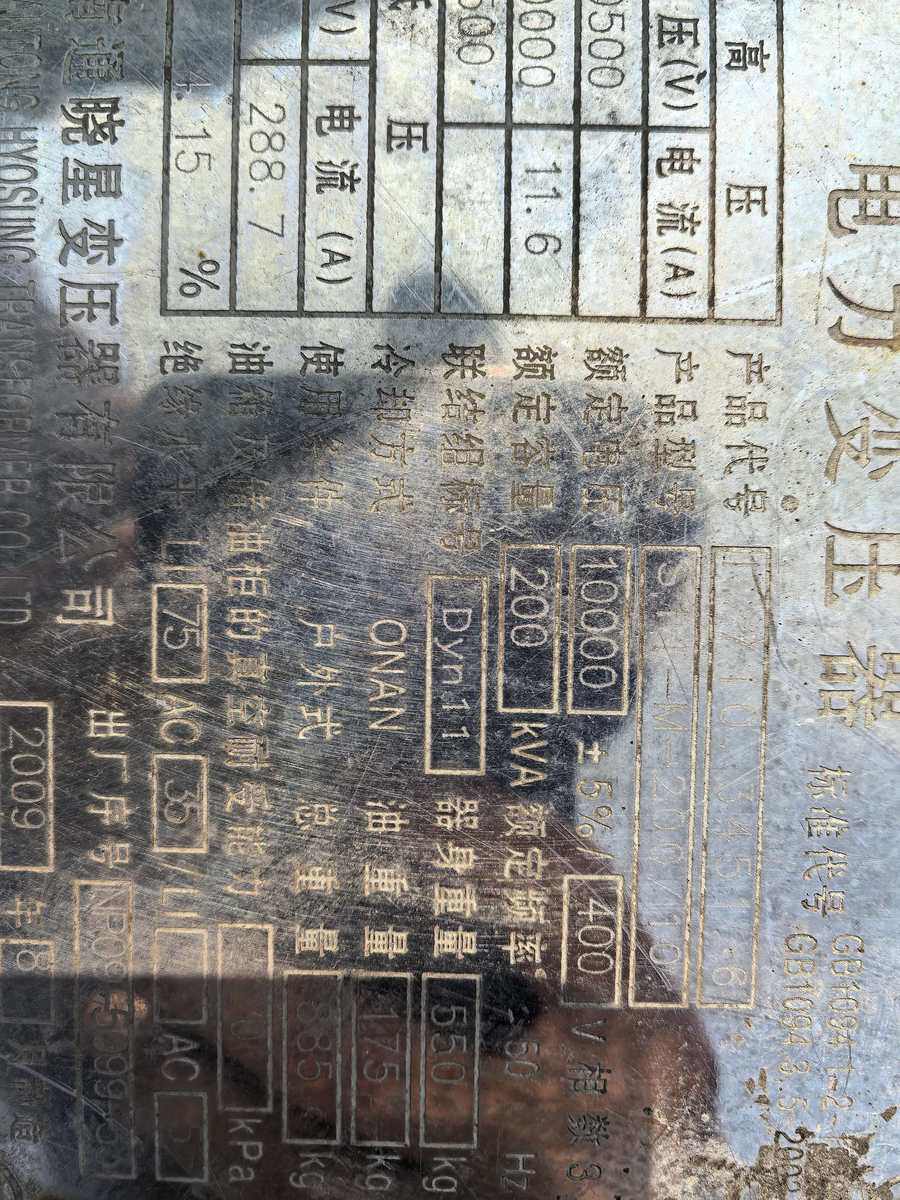 电力变压器
标准代号 GB1094.1-2
GB1094.3.5
高压
压(V) 电流(A)
产品代号 710.3451.6
产品型号 S11-M-200/10
0500
额定电压 10000 ±5%/ 400 V 相数 3
0000 11.6
额定容量 200 kVA 额定频率 50 Hz
500
联结组标号 Dyn11 器身重量 550 kg
压
冷却方式 ONAN 油重量 175 kg
(V) 电流(A)
使用条件 户外式 总重量 885 kg
288.7
油箱及储油柜的真空耐受能力 kPa
4.15 %
绝缘水平 LI 75 AC 35 /LI AC 5
南通晓星变压器有限公司 出厂序号
NANTONG HYOSUNG TRANSFORMER CO.,LTD 2009 年 8 月制造